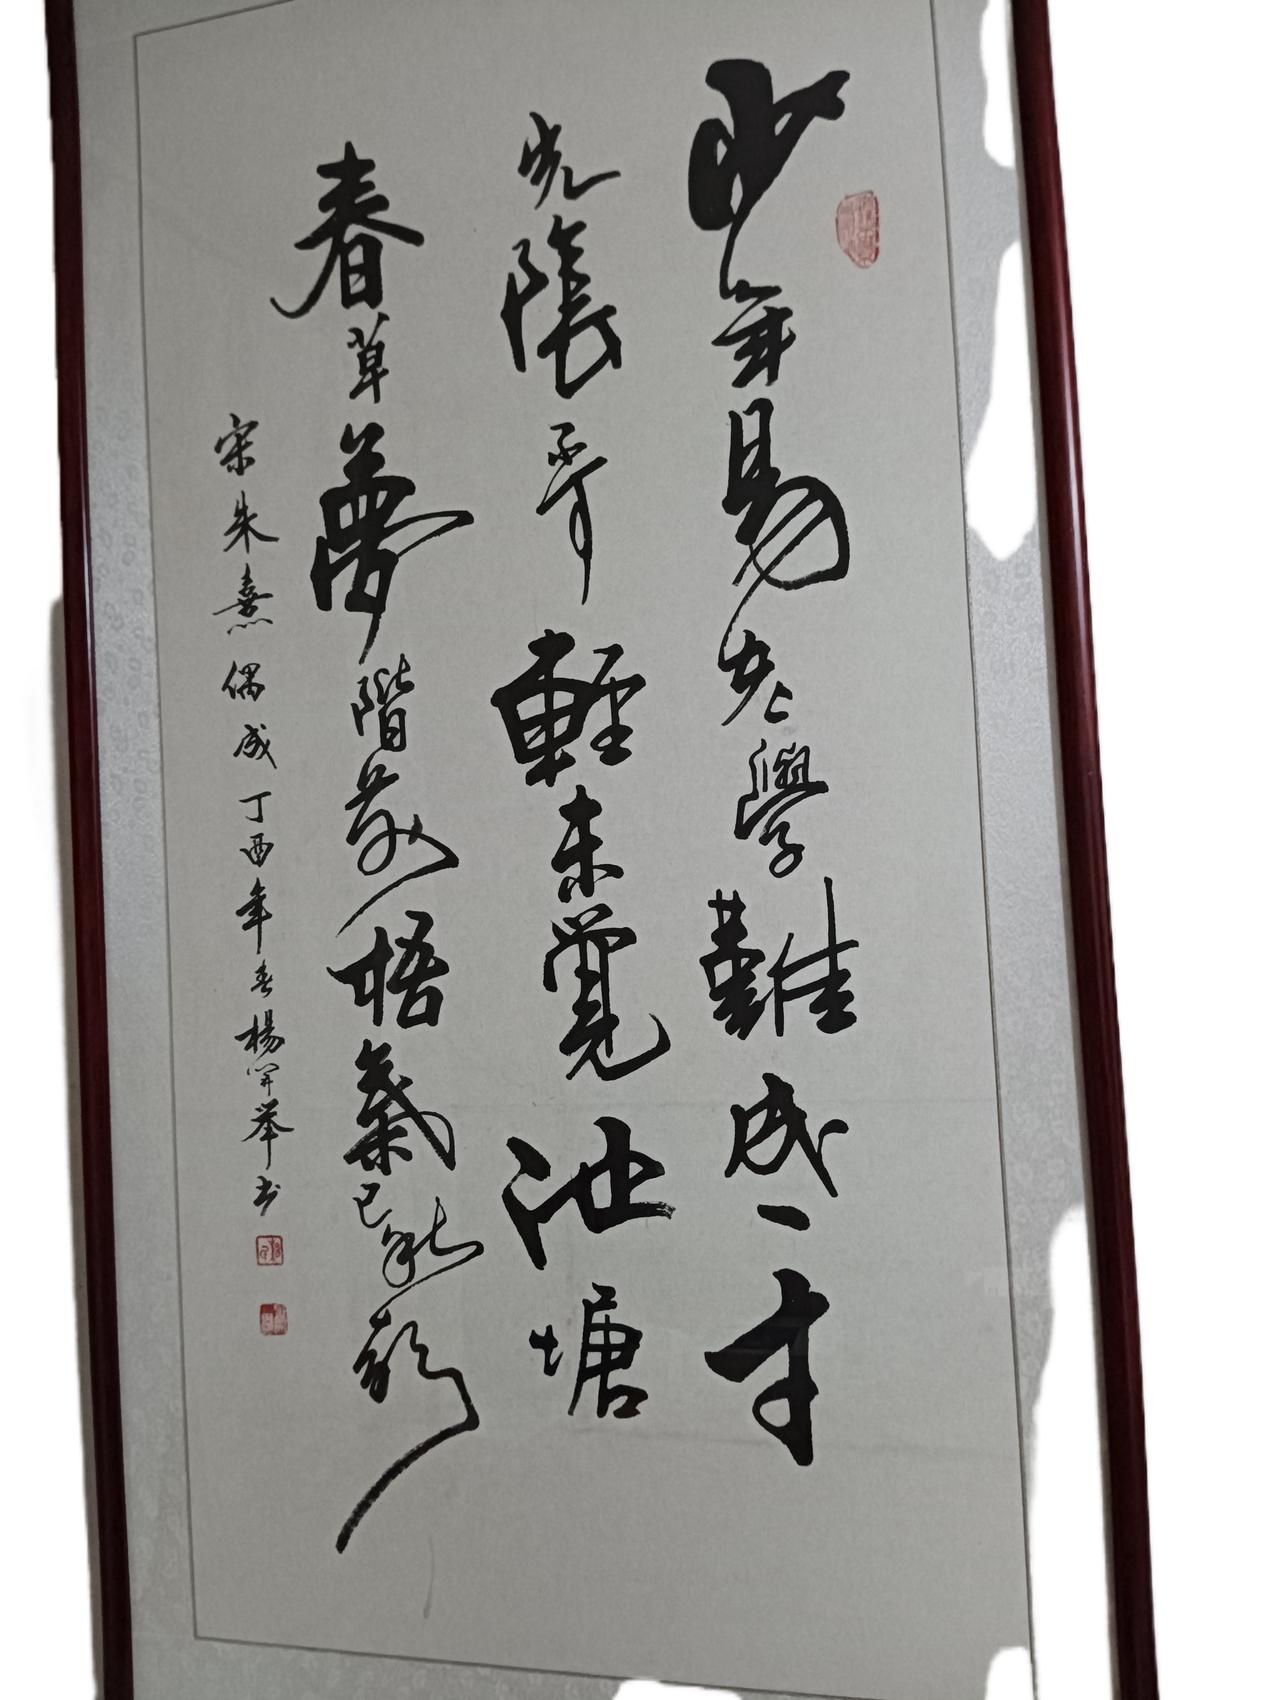 少年易老學難成一寸
光陰不可輕未覚池塘
春草夢階前梧葉已秋聲
宋朱熹偶成丁酉年春楊開举书